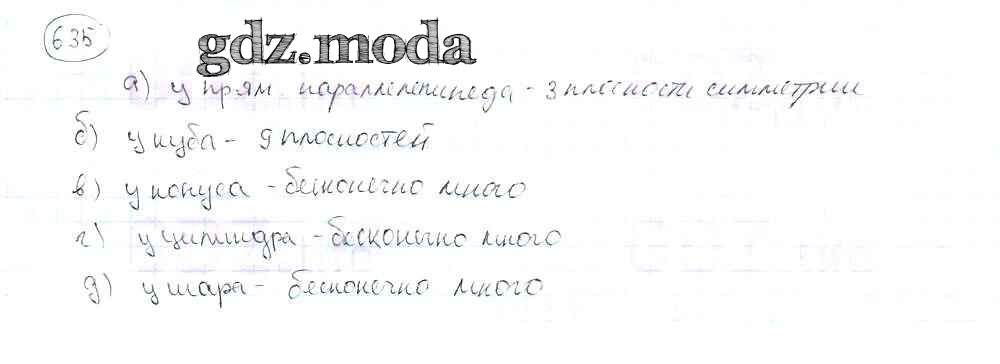 635
gdz.moda
а) у прям. параллелепипеда - 3 плоскости симметрии
б) у куба - 9 плоскостей
в) у конуса - бесконечно много
г) у цилиндра - бесконечно много
д) у шара - бесконечно много